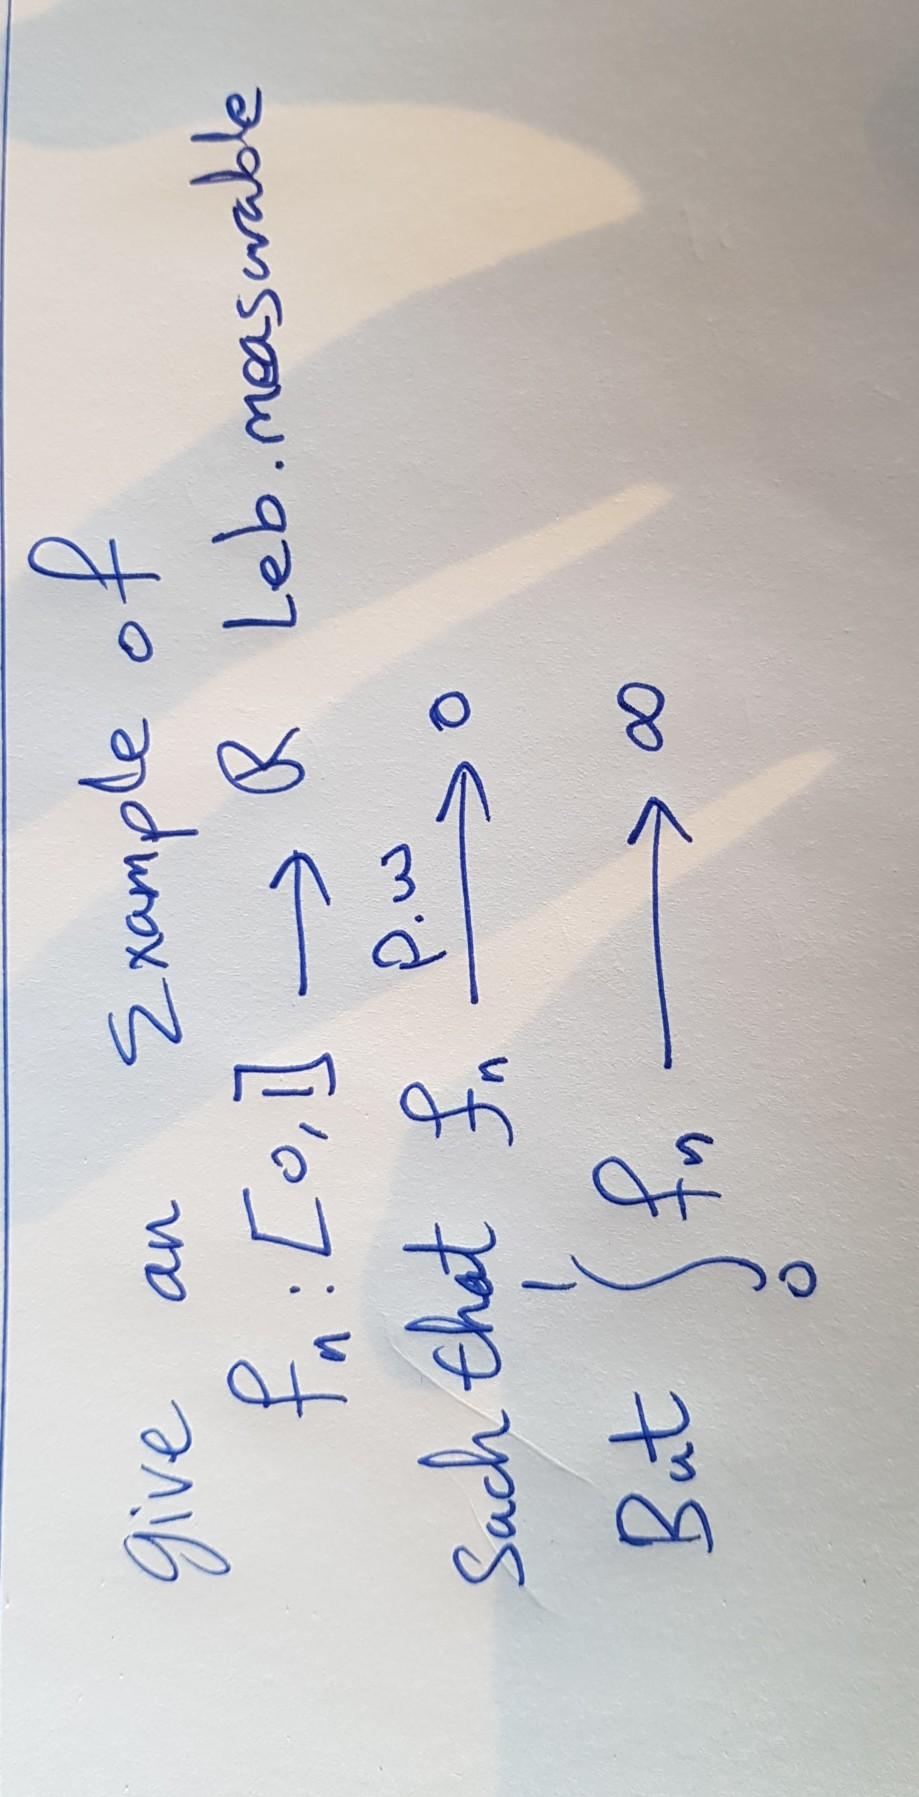 give an Example of
fₙ : [0,1] → R Leb. measurable
Such that fₙ p.w → 0
But ∫₀¹ fₙ → ∞